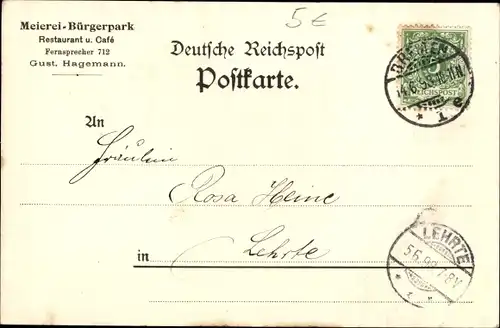 5€
Meierei-Bürgerpark
Restaurant u. Café
Fernsprecher 712
Gust. Hagemann.
Deutsche Reichspost
Postkarte.
BREMEN
REICHSPOST
* 1 e
An
Fräulein
Rosa Heine
in Lehrte
LEHRTE
7-8V